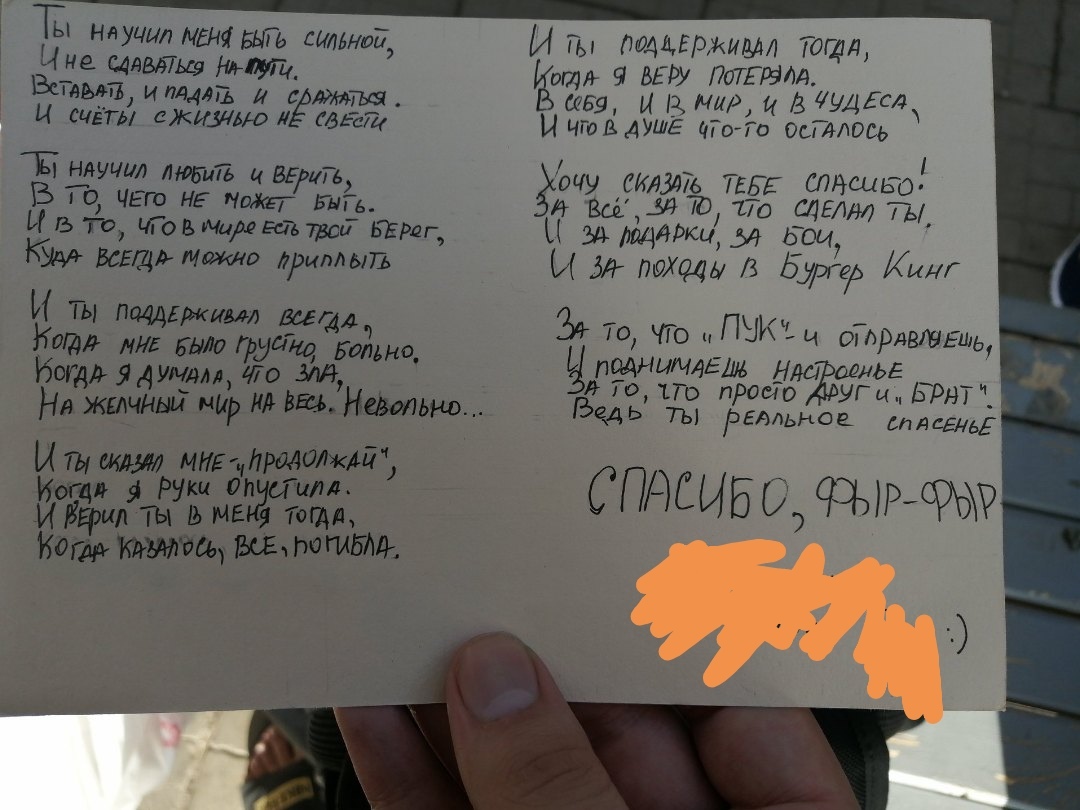 Ты научил меня быть сильной,
И не сдаваться на пути.
Вставать, и падать и сражаться.
И счёты с жизнью не свести
Ты научил любить и верить,
В то, чего не может быть.
И в то, что в мире есть твой берег,
Куда всегда можно приплыть
И ты поддерживал всегда,
Когда мне было грустно, больно.
Когда я думала, что зла,
На желчный мир на весь. Невольно...
И ты сказал мне - "продолжай",
Когда я руки опустила.
И верил ты в меня тогда,
Когда казалось, все, погибла.
И ты поддерживал тогда,
Когда я веру потеряла.
В себя, и в мир, и в чудеса,
И что в душе что-то осталось
Хочу сказать тебе спасибо!
За всё, за то, что сделал ты,
И за подарки, за бои,
И за походы в Бургер Кинг
За то, что "ПУК"- и отправляешь,
И поднимаешь настроенье
За то, что просто друг и "БРАТ".
Ведь ты реальное спасенье
СПАСИБО, ФЫР-ФЫР
:)